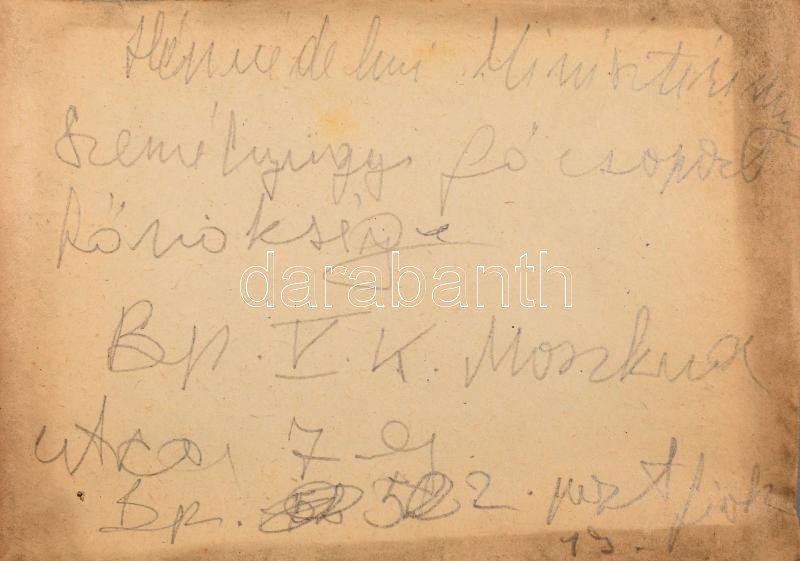 Honvédelmi Minisztérium
Személyügyi főcsoport
főnöksége
darabanth
Bp. V. k. Moszkva
utca 7
Bp. 502. postfiók